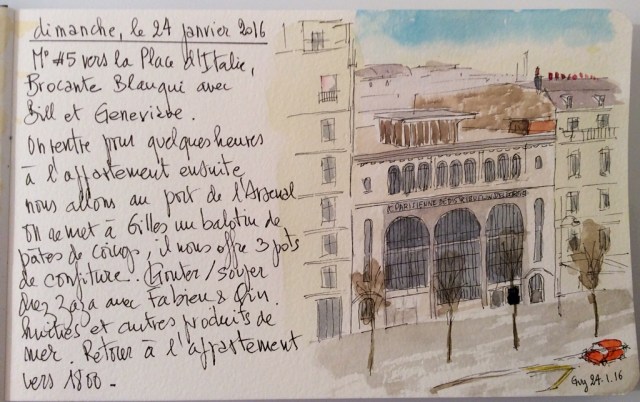 dimanche, le 24 janvier 2016
M° #5 vers la Place d'Italie,
Brocante Blanqui avec
Bill et Geneviève.
On rentre pour quelques heures
à l'appartement ensuite
nous allons au port de l'Arsenal
On remet à Gilles un balotin de
pâtes de coings, il nous offre 3 pots
de confiture. Goûter/souper
chez Zaza avec Fabien &
huîtres et autres produits de
mer. Retour à l'appartement
vers 1800 -
PARISIENNE DE DISTRIBUTION
Guy 24.1.16